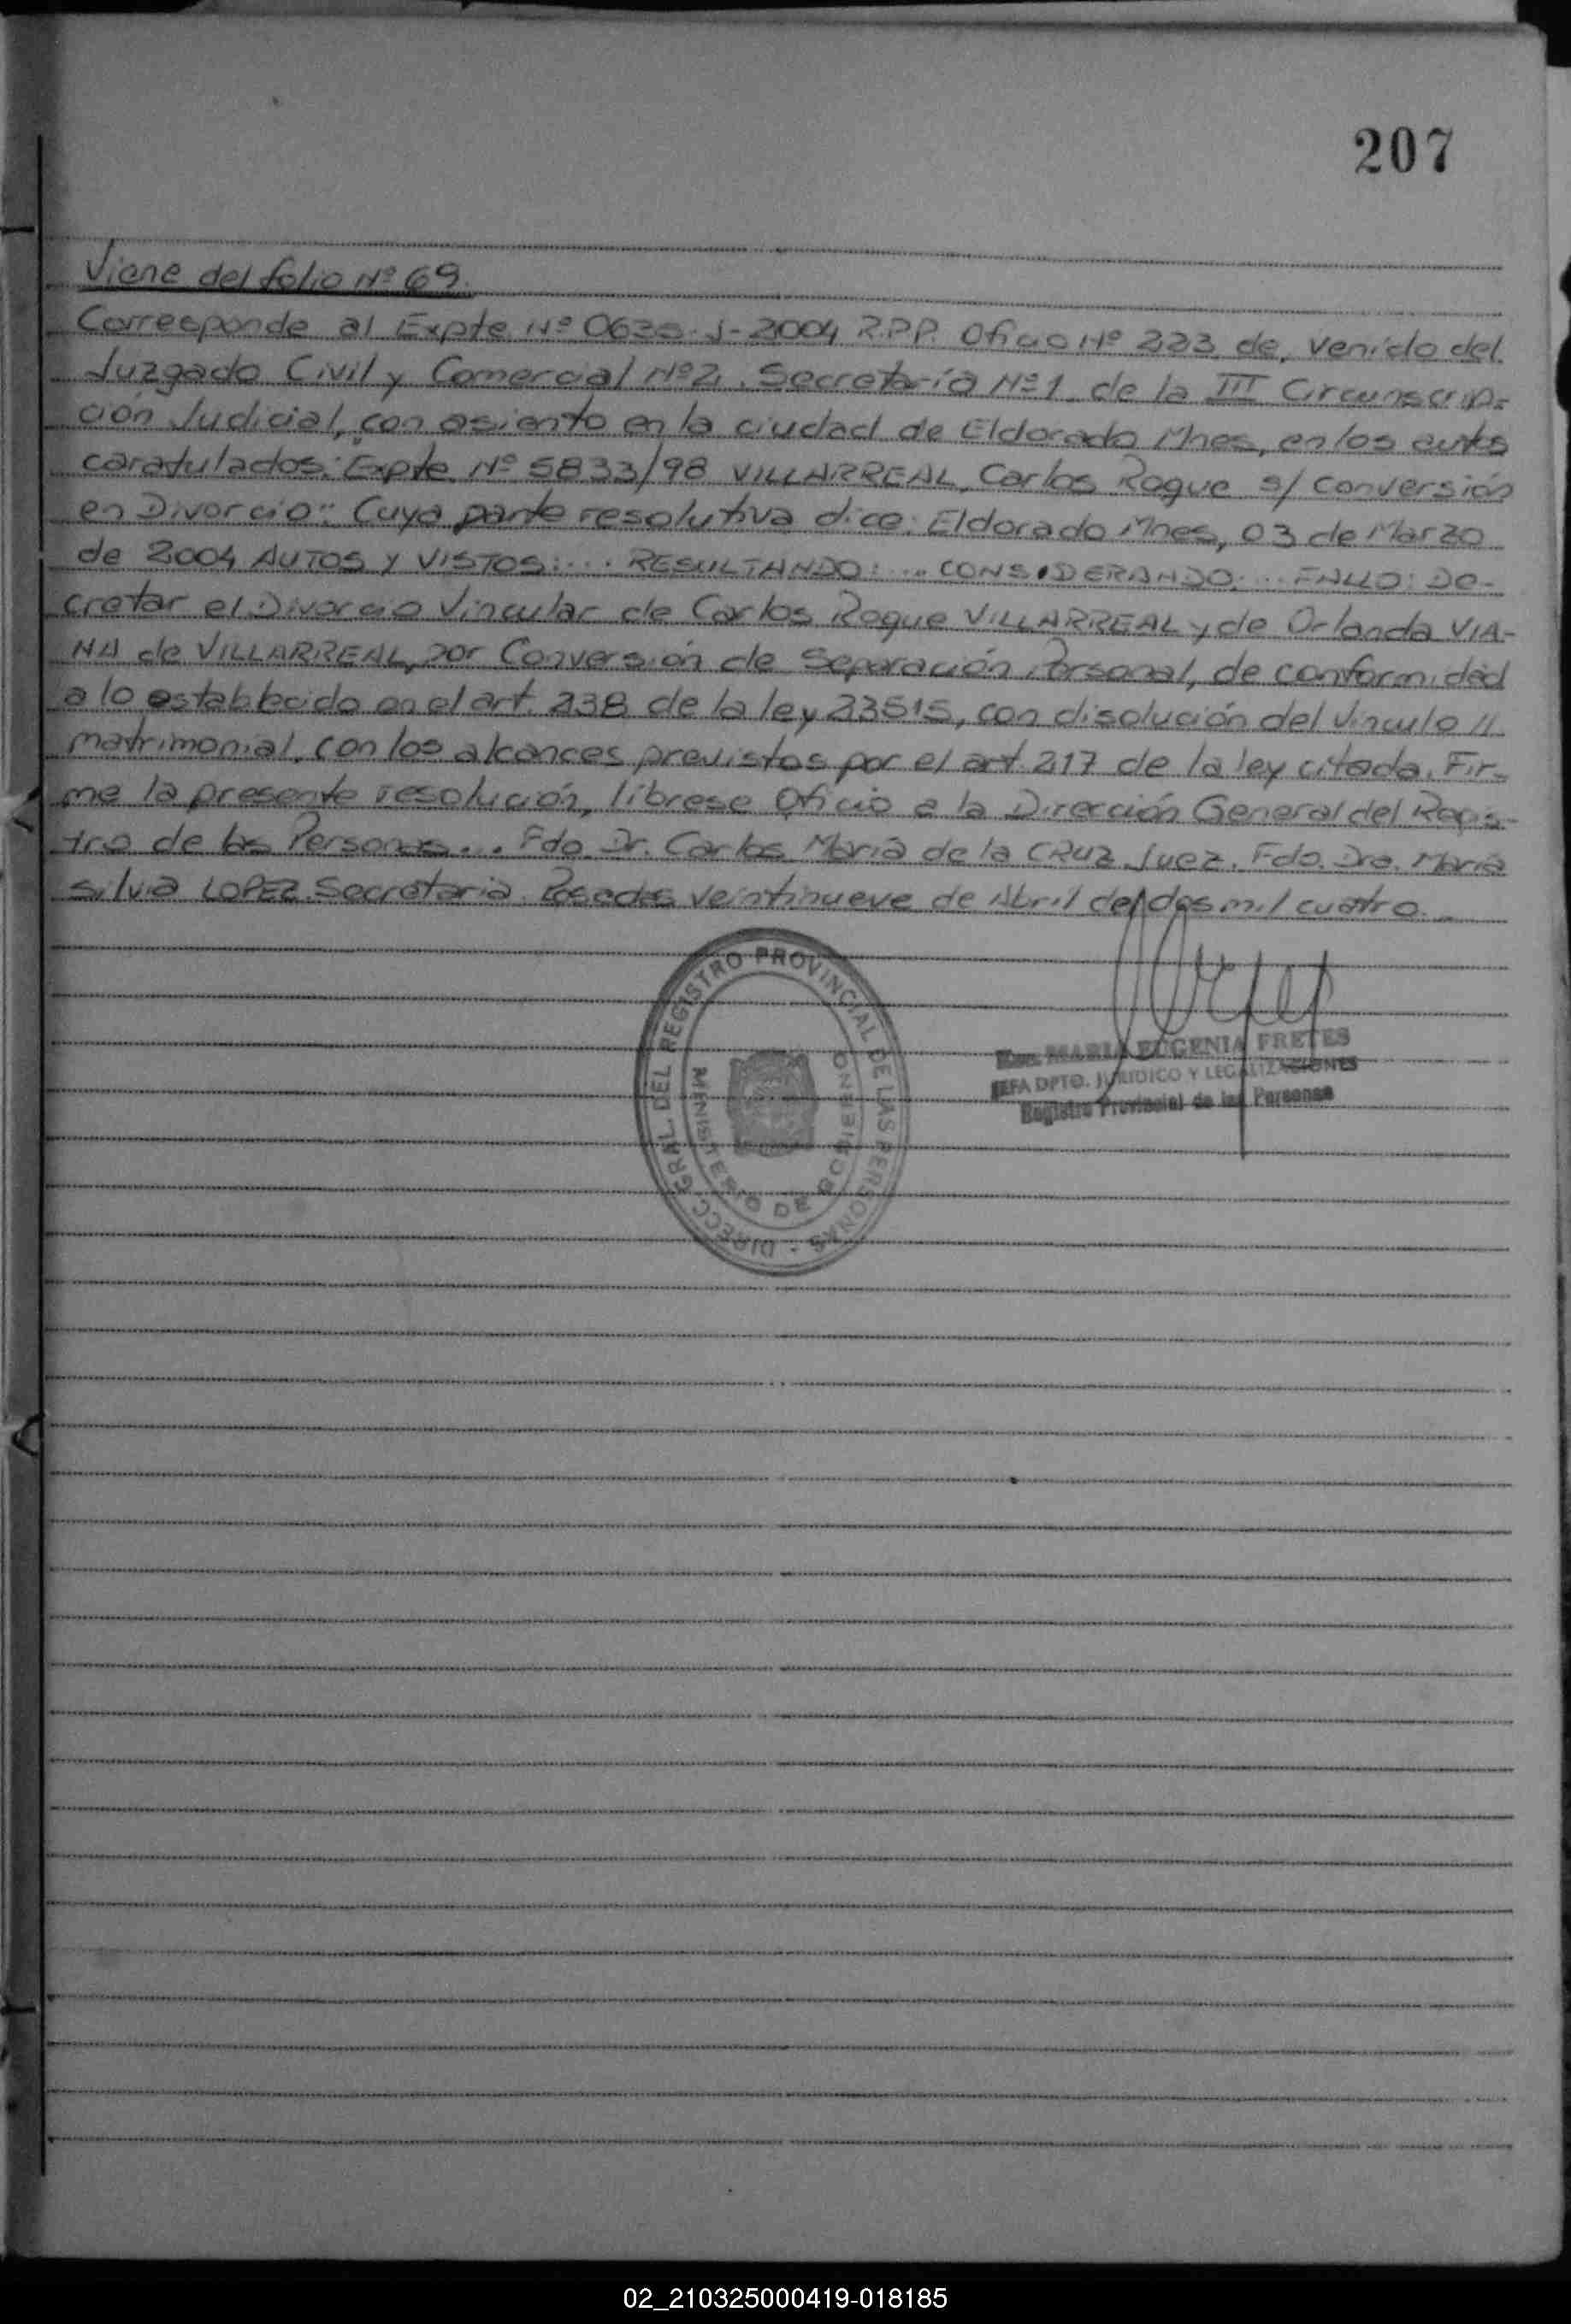 207
Viene del folio Nº 69.
Corresponde al Expte. Nº J-2004 R.P.P. Oficio Nº 223 de, venido del
Juzgado Civil y Comercial Nº 2, Secretaría Nº 1 de la III Circunscrip-
ción Judicial, con asiento en la ciudad de Eldorado Mnes, en los autos
caratulados: "Expte Nº 5833/98 VILLARREAL, Carlos Roque s/ conversión
en Divorcio": Cuya parte resolutiva dice: Eldorado Mnes, 03 de Marzo
de 2004 AUTOS Y VISTOS: ... RESULTANDO: ... CONSIDERANDO: ... FALLO: De-
cretar el Divorcio Vincular de Carlos Roque VILLARREAL y de Orlanda VIA-
NA de VILLARREAL, por Conversión de Separación Personal, de conformidad
a lo establecido en el art. 238 de la ley 23515, con disolución del Vinculo //
matrimonial, con los alcances previstos por el art. 217 de la ley citada. Fir-
me la presente resolución, líbrese Oficio a la Dirección General del Regis-
tro de las Personas... Fdo. Dr. Carlos María de la CRUZ Juez. Fdo. Dra. María
Silvia LOPEZ. Secretaria. Posadas veintinueve de Abril del dos mil cuatro.
DIRECC. GRAL. DEL REGISTRO PROVINCIAL DE LAS PERSONAS -
MINISTERIO DE GOBIERNO
MARIA EUGENIA FRETES
JEFA DPTO. JURIDICO Y LEGALIZACIONES
Registro Provincial de las Personas
02_210325000419-018185